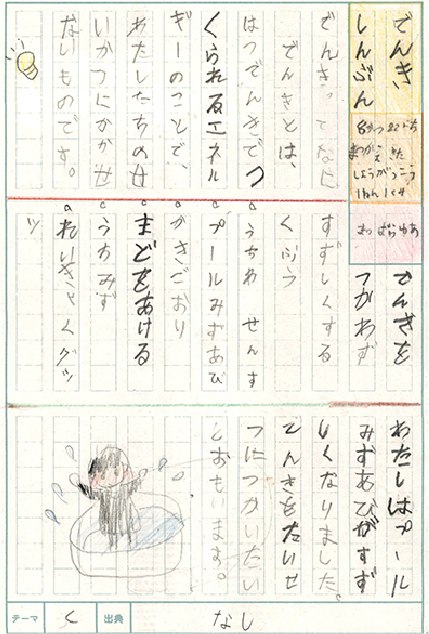 でんき
しんぶん
まつがえきた
しょうがっこう
1ねん1くみ
でんきってなに
でんきとは、
はつでんきでつ
くられるエネル
ぎーのことで、
わたしたちのせ
いかつにかかせ
ないものです。
でんきを
つかわず
すずしくする
くふう
うちわ せんす
プールみずあび
かきごおり
まどをあける
うちみず
れいきゃくグッ
ツ
わたしはプール
みずあびがすず
しくなりました。
でんきをたいせ
つにつかいたい
とおもいます。
テーマ
出典
なし